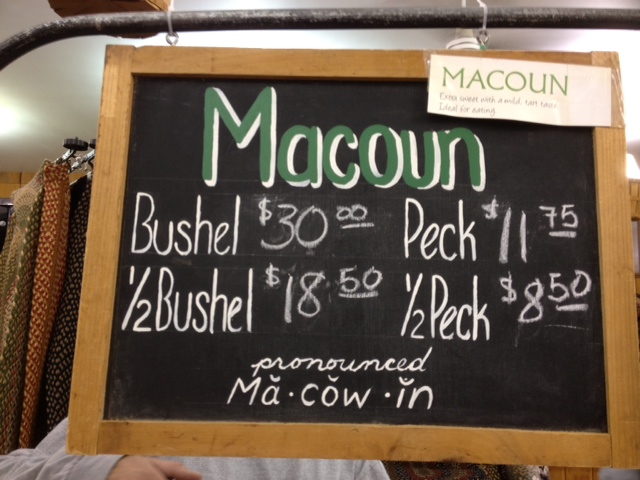 MACOUN
Extra sweet with a mild, tart taste.
Ideal for eating.
Macoun
Bushel $30 00 Peck $11 75
1/2 Bushel $18 50 1/2 Peck $8 50
pronounced
Mă·cŏw·ĭn